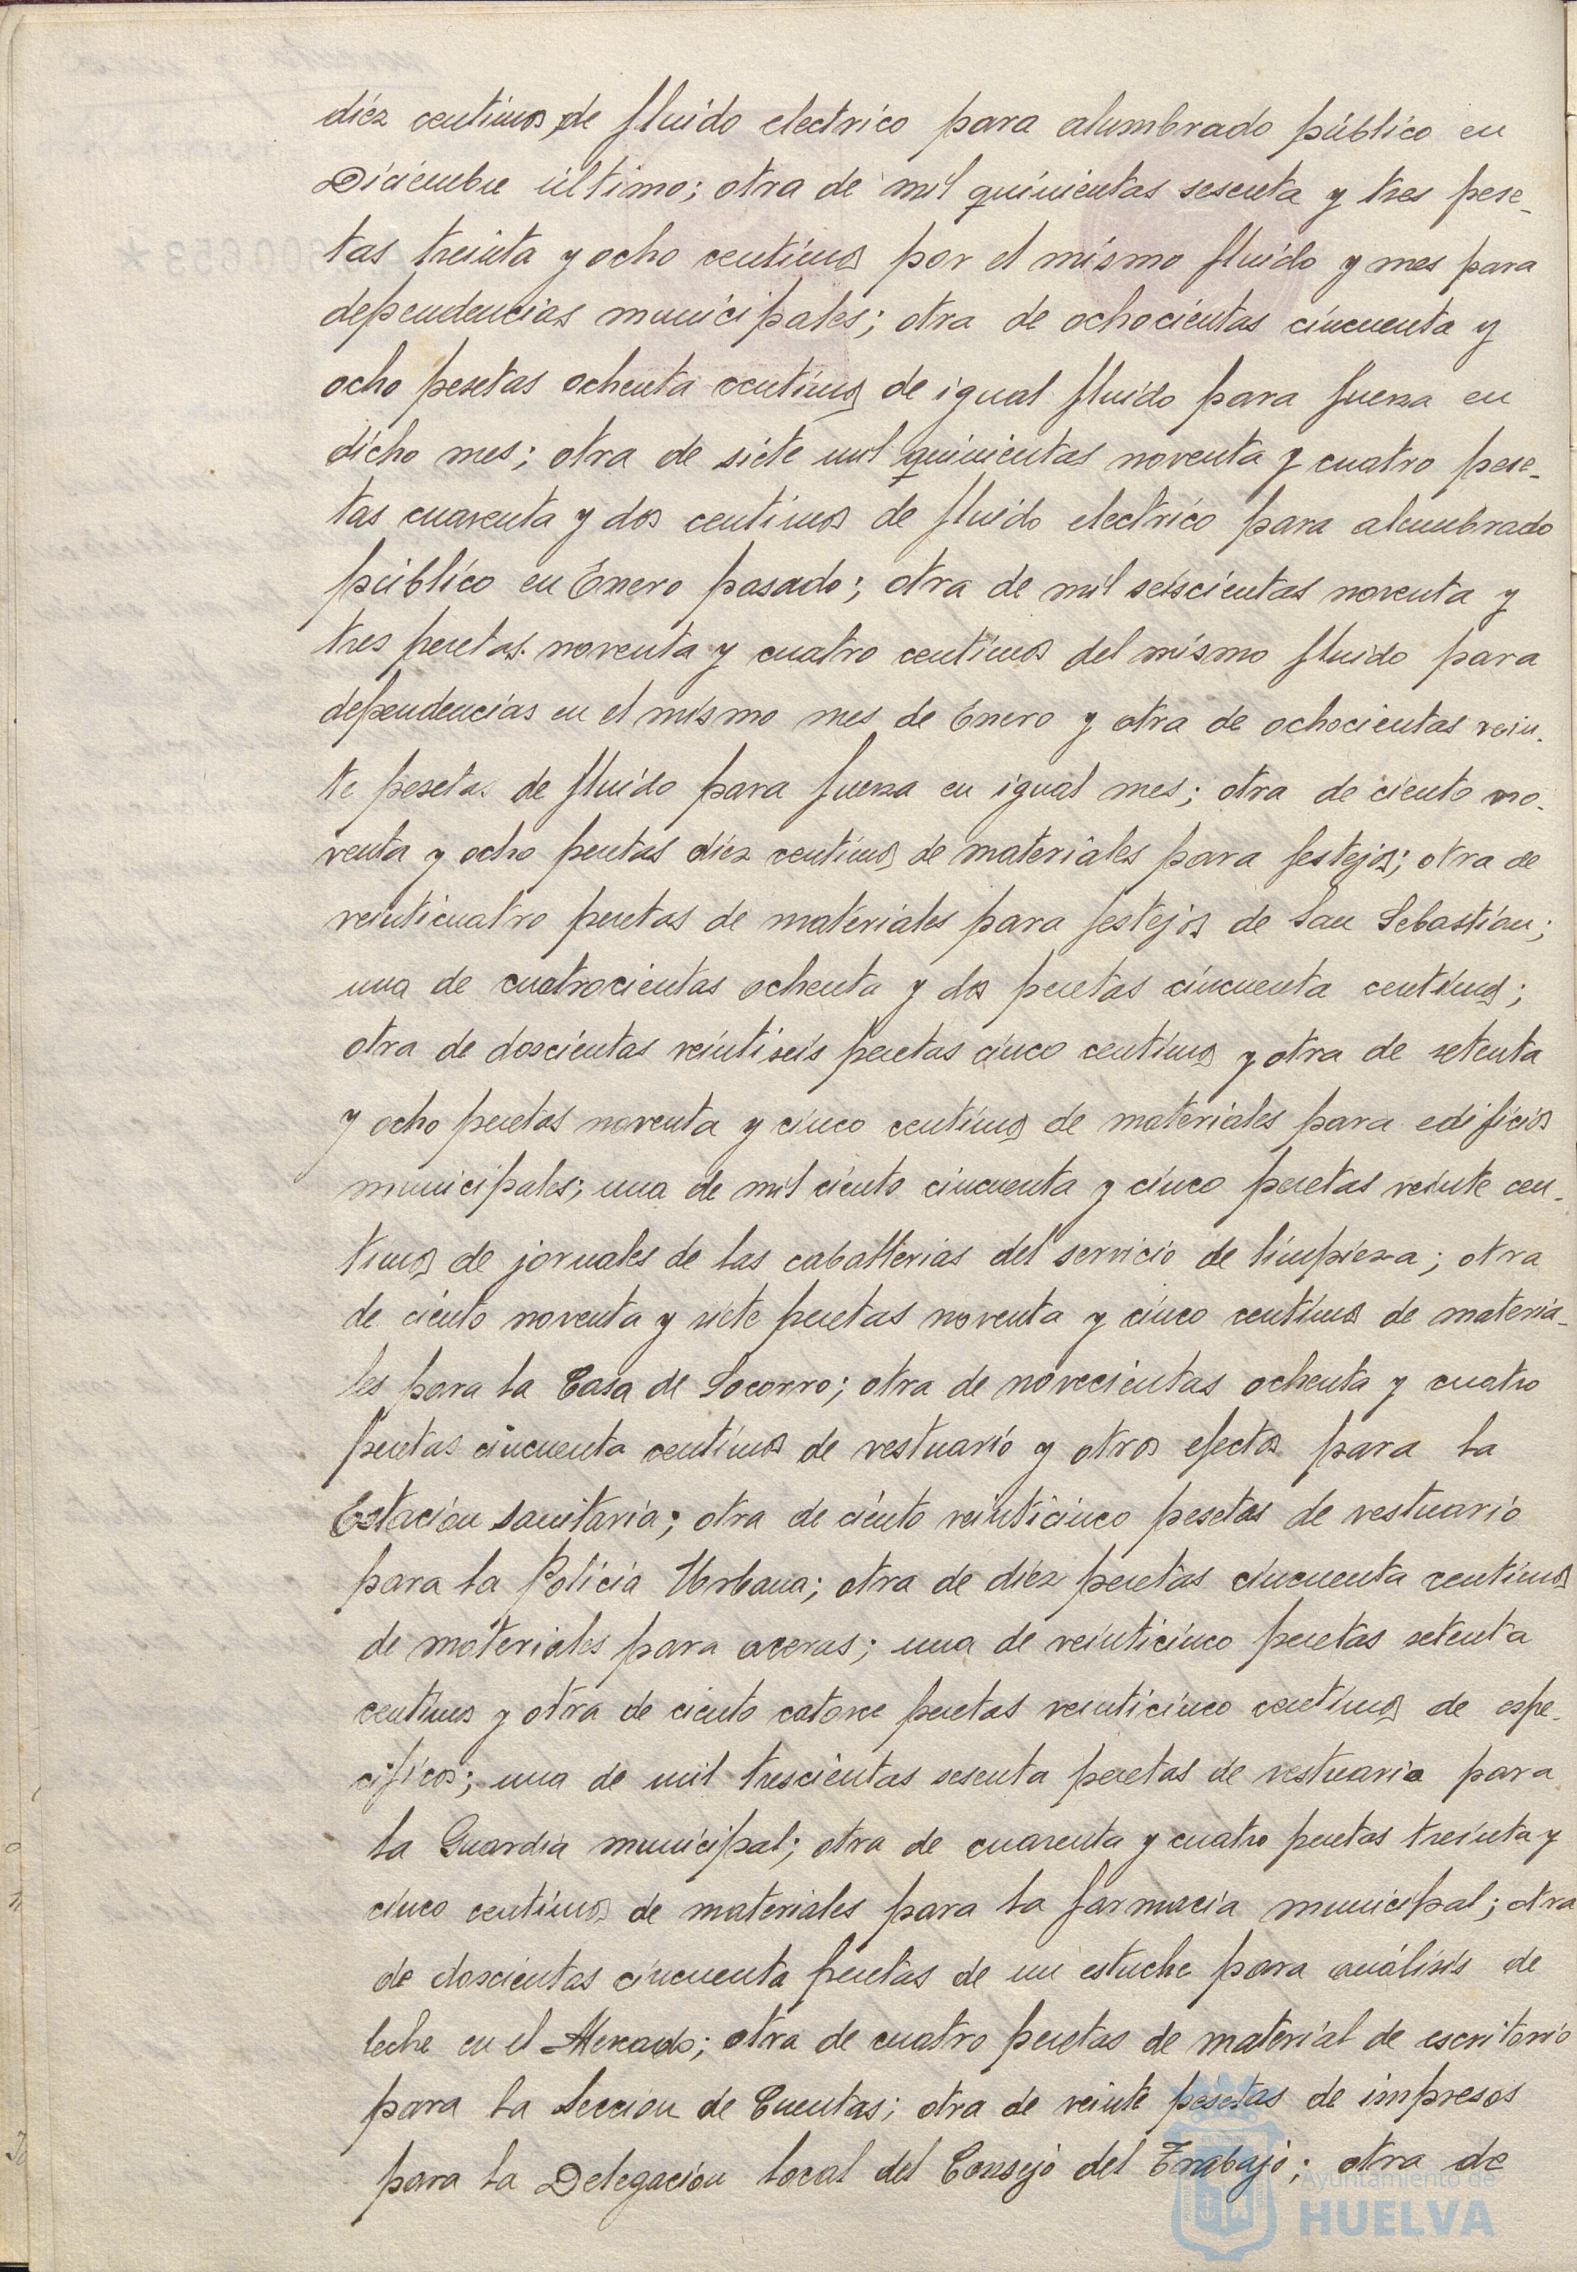 diez centimos de fluido electrico para alumbrado público en
Diciembre último; otra de mil quinientas sesenta y tres pese-
tas treinta y ocho centimos por el mismo fluido y mes para
dependencias municipales; otra de ochocientas cincuenta y
ocho pesetas ochenta centimos de igual fluido para fuerza en
dicho mes; otra de siete mil quinientas noventa y cuatro pese-
tas cuarenta y dos centimos de fluido electrico para alumbrado
público en Enero pasado; otra de mil seiscientas noventa y
tres pesetas noventa y cuatro centimos del mismo fluido para
dependencias en el mismo mes de Enero y otra de ochocientas vein-
te pesetas de fluido para fuerza en igual mes; otra de ciento no-
venta y ocho pesetas diez centimos de materiales para festejos; otra de
veinticuatro pesetas de materiales para festejos de San Sebastian;
una de cuatrocientas ochenta y dos pesetas cincuenta centimos;
otra de doscientas veintiseis pesetas cinco centimos y otra de setenta
y ocho pesetas noventa y cinco centimos de materiales para edificios
municipales; una de mil ciento cincuenta y cinco pesetas veinte cen-
timos de jornales de las caballerias del servicio de limpieza; otra
de ciento noventa y siete pesetas noventa y cinco centimos de materia-
les para la Casa de Socorro; otra de novecientas ochenta y cuatro
pesetas cincuenta centimos de vestuario y otros efectos para la
Estación Sanitaria; otra de ciento veinticinco pesetas de vestuario
para la Policia Urbana; otra de diez pesetas cincuenta centimos
de materiales para aceras; una de veinticinco pesetas setenta
centimos y otra de ciento catorce pesetas veinticinco centimos de espe-
cificos; una de mil trescientas sesenta pesetas de vestuario para
la Guardia municipal; otra de cuarenta y cuatro pesetas treinta y
cinco centimos de materiales para la farmacia municipal; otra
de doscientas cincuenta pesetas de un estuche para análisis de
leche en el Mercado; otra de cuatro pesetas de material de escritorio
para la Seccion de Cuentas; otra de veinte pesetas de impresos
para la Delegación local del Consejo del Trabajo; otra de
Ayuntamiento de
HUELVA